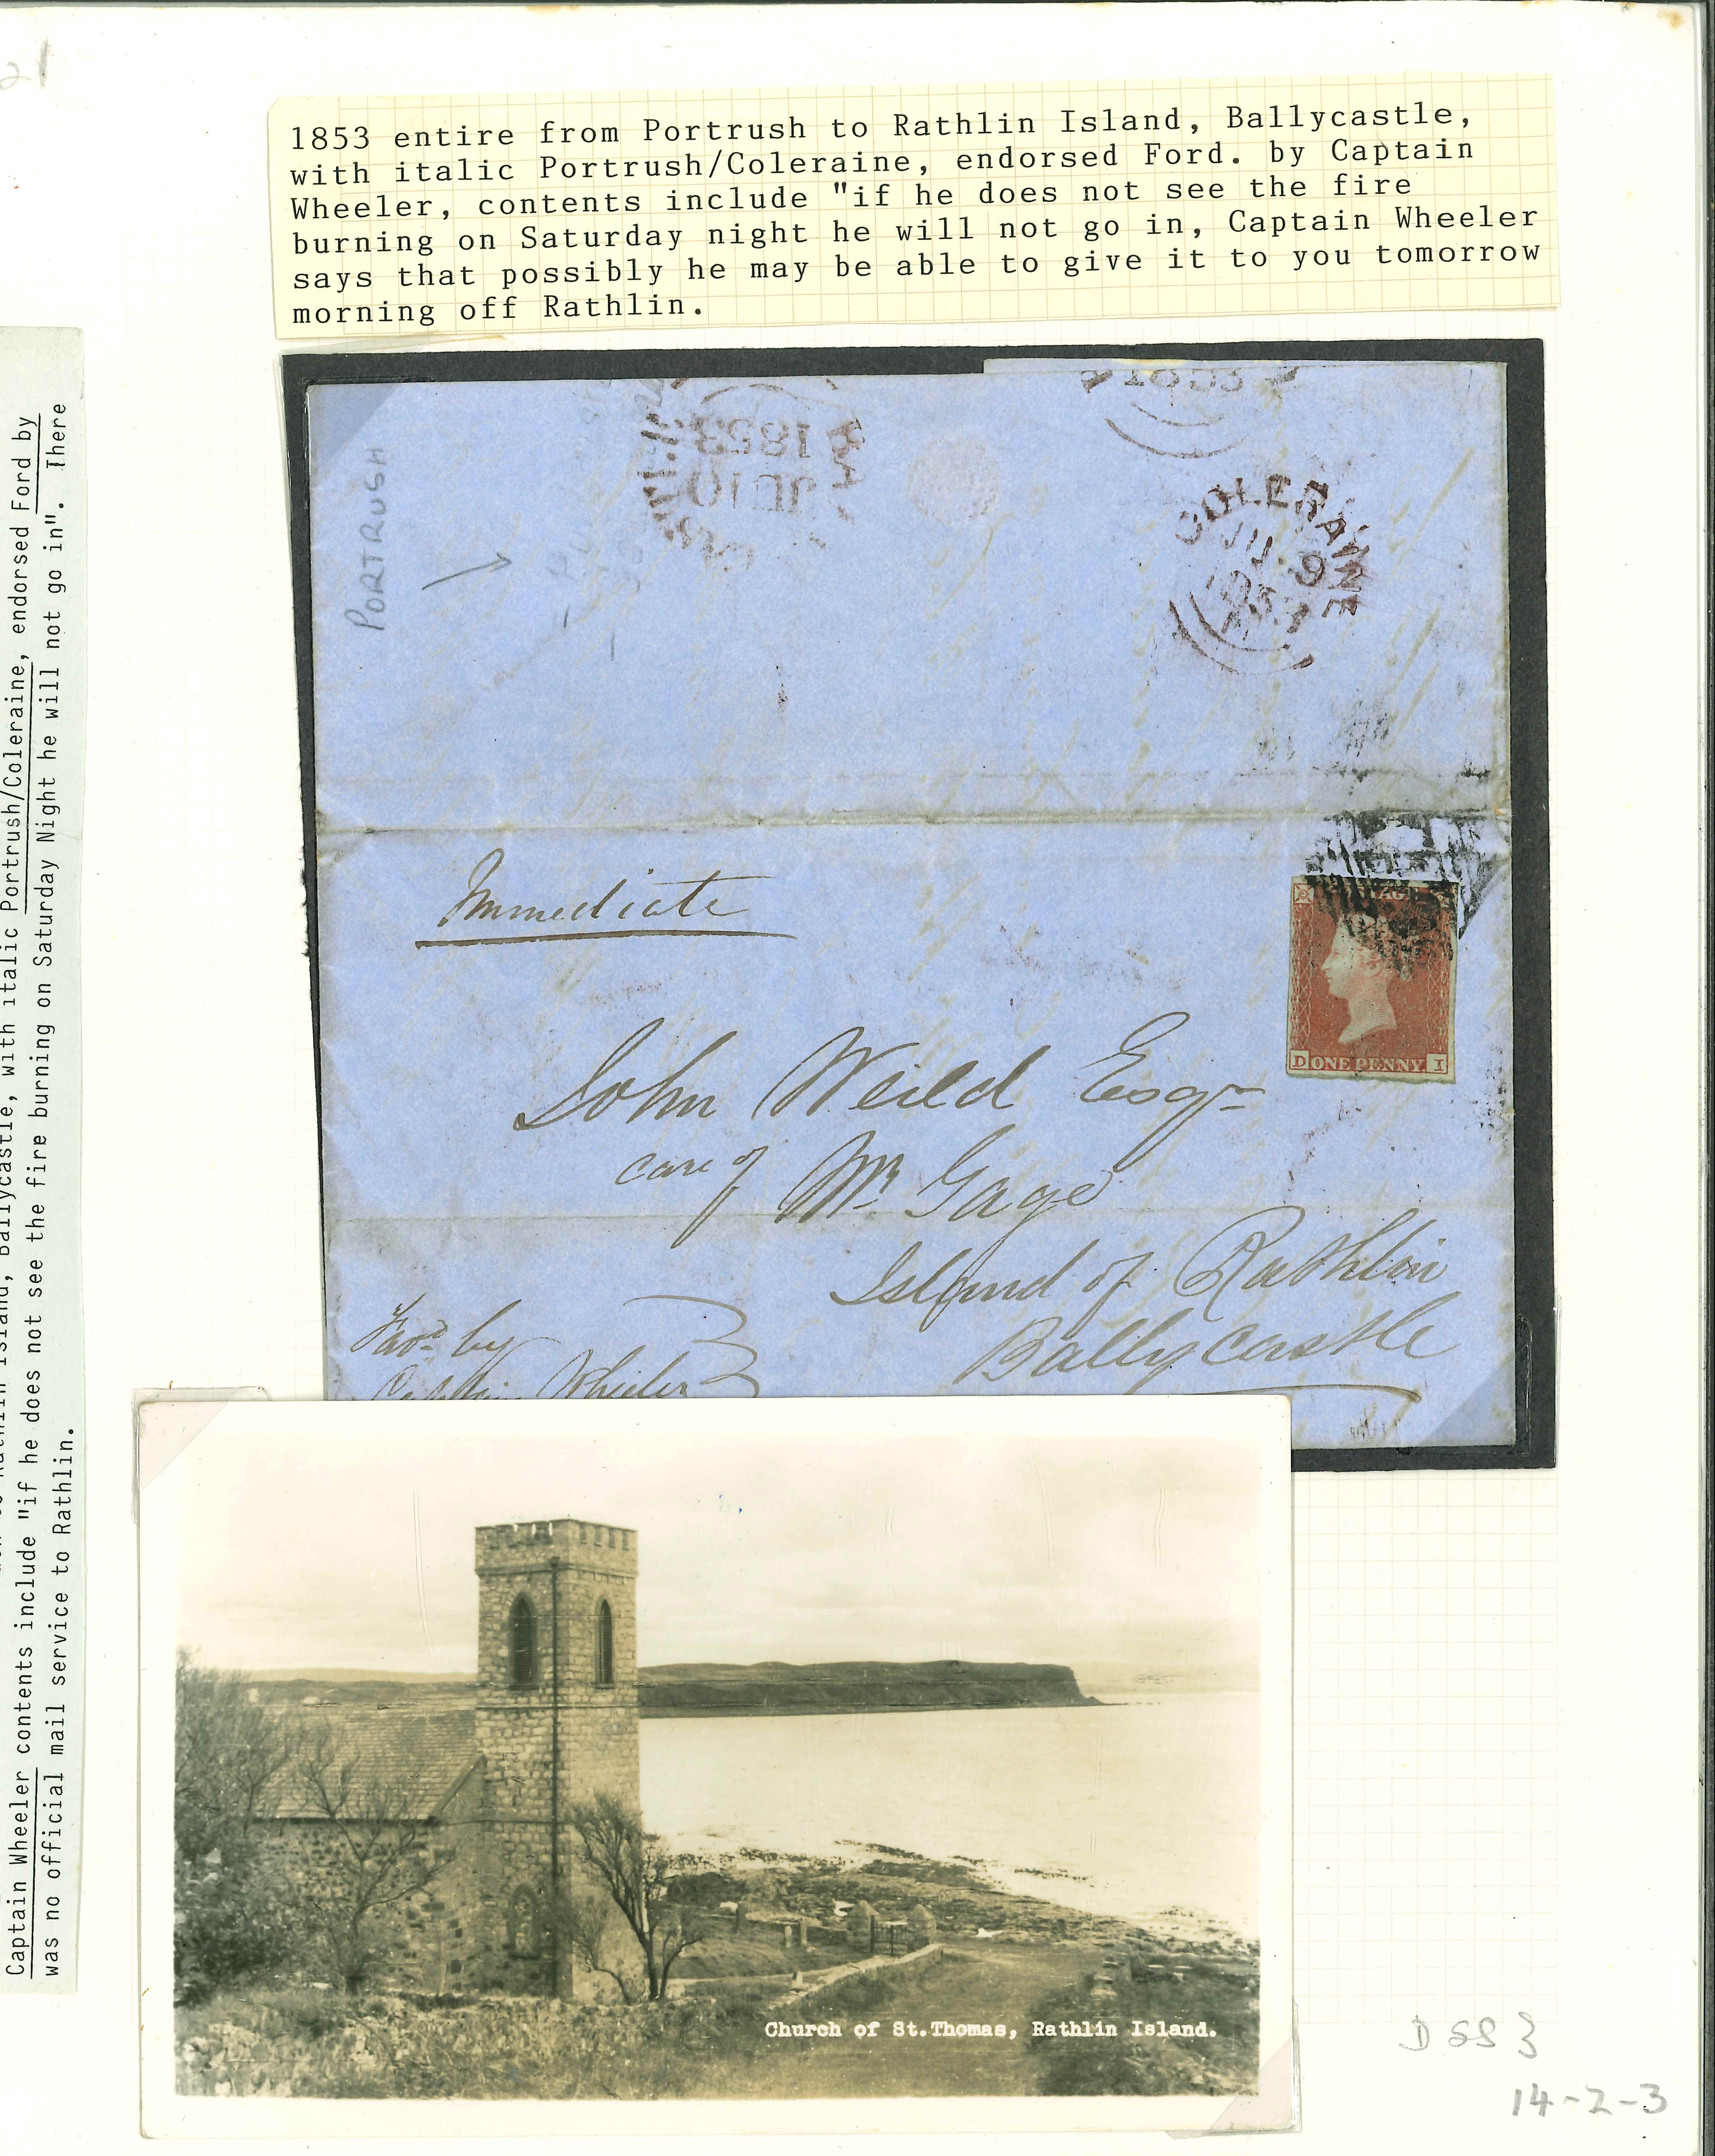 21
1853 entire from Portrush to Rathlin Island, Ballycastle,
with italic Portrush/Coleraine, endorsed Ford. by Captain
Wheeler, contents include "if he does not see the fire
burning on Saturday night he will not go in, Captain Wheeler
says that possibly he may be able to give it to you tomorrow
morning off Rathlin.
Rathlin Island, Ballycastle, with italic Portrush/Coleraine, endorsed Ford by
Captain Wheeler contents include "if he does not see the fire burning on Saturday Night he will not go in". There
was no official mail service to Rathlin.
PORTRUSH
1853
JU 10
1853
COLERAINE
JU 9
1853
Immediate
D ONE PENNY I
John Weild Esqr
care of Mr Gage
Island of Rathlin
Ballycastle
Favd by
Captain Wheeler
Church of St.Thomas, Rathlin Island.
14-2-3